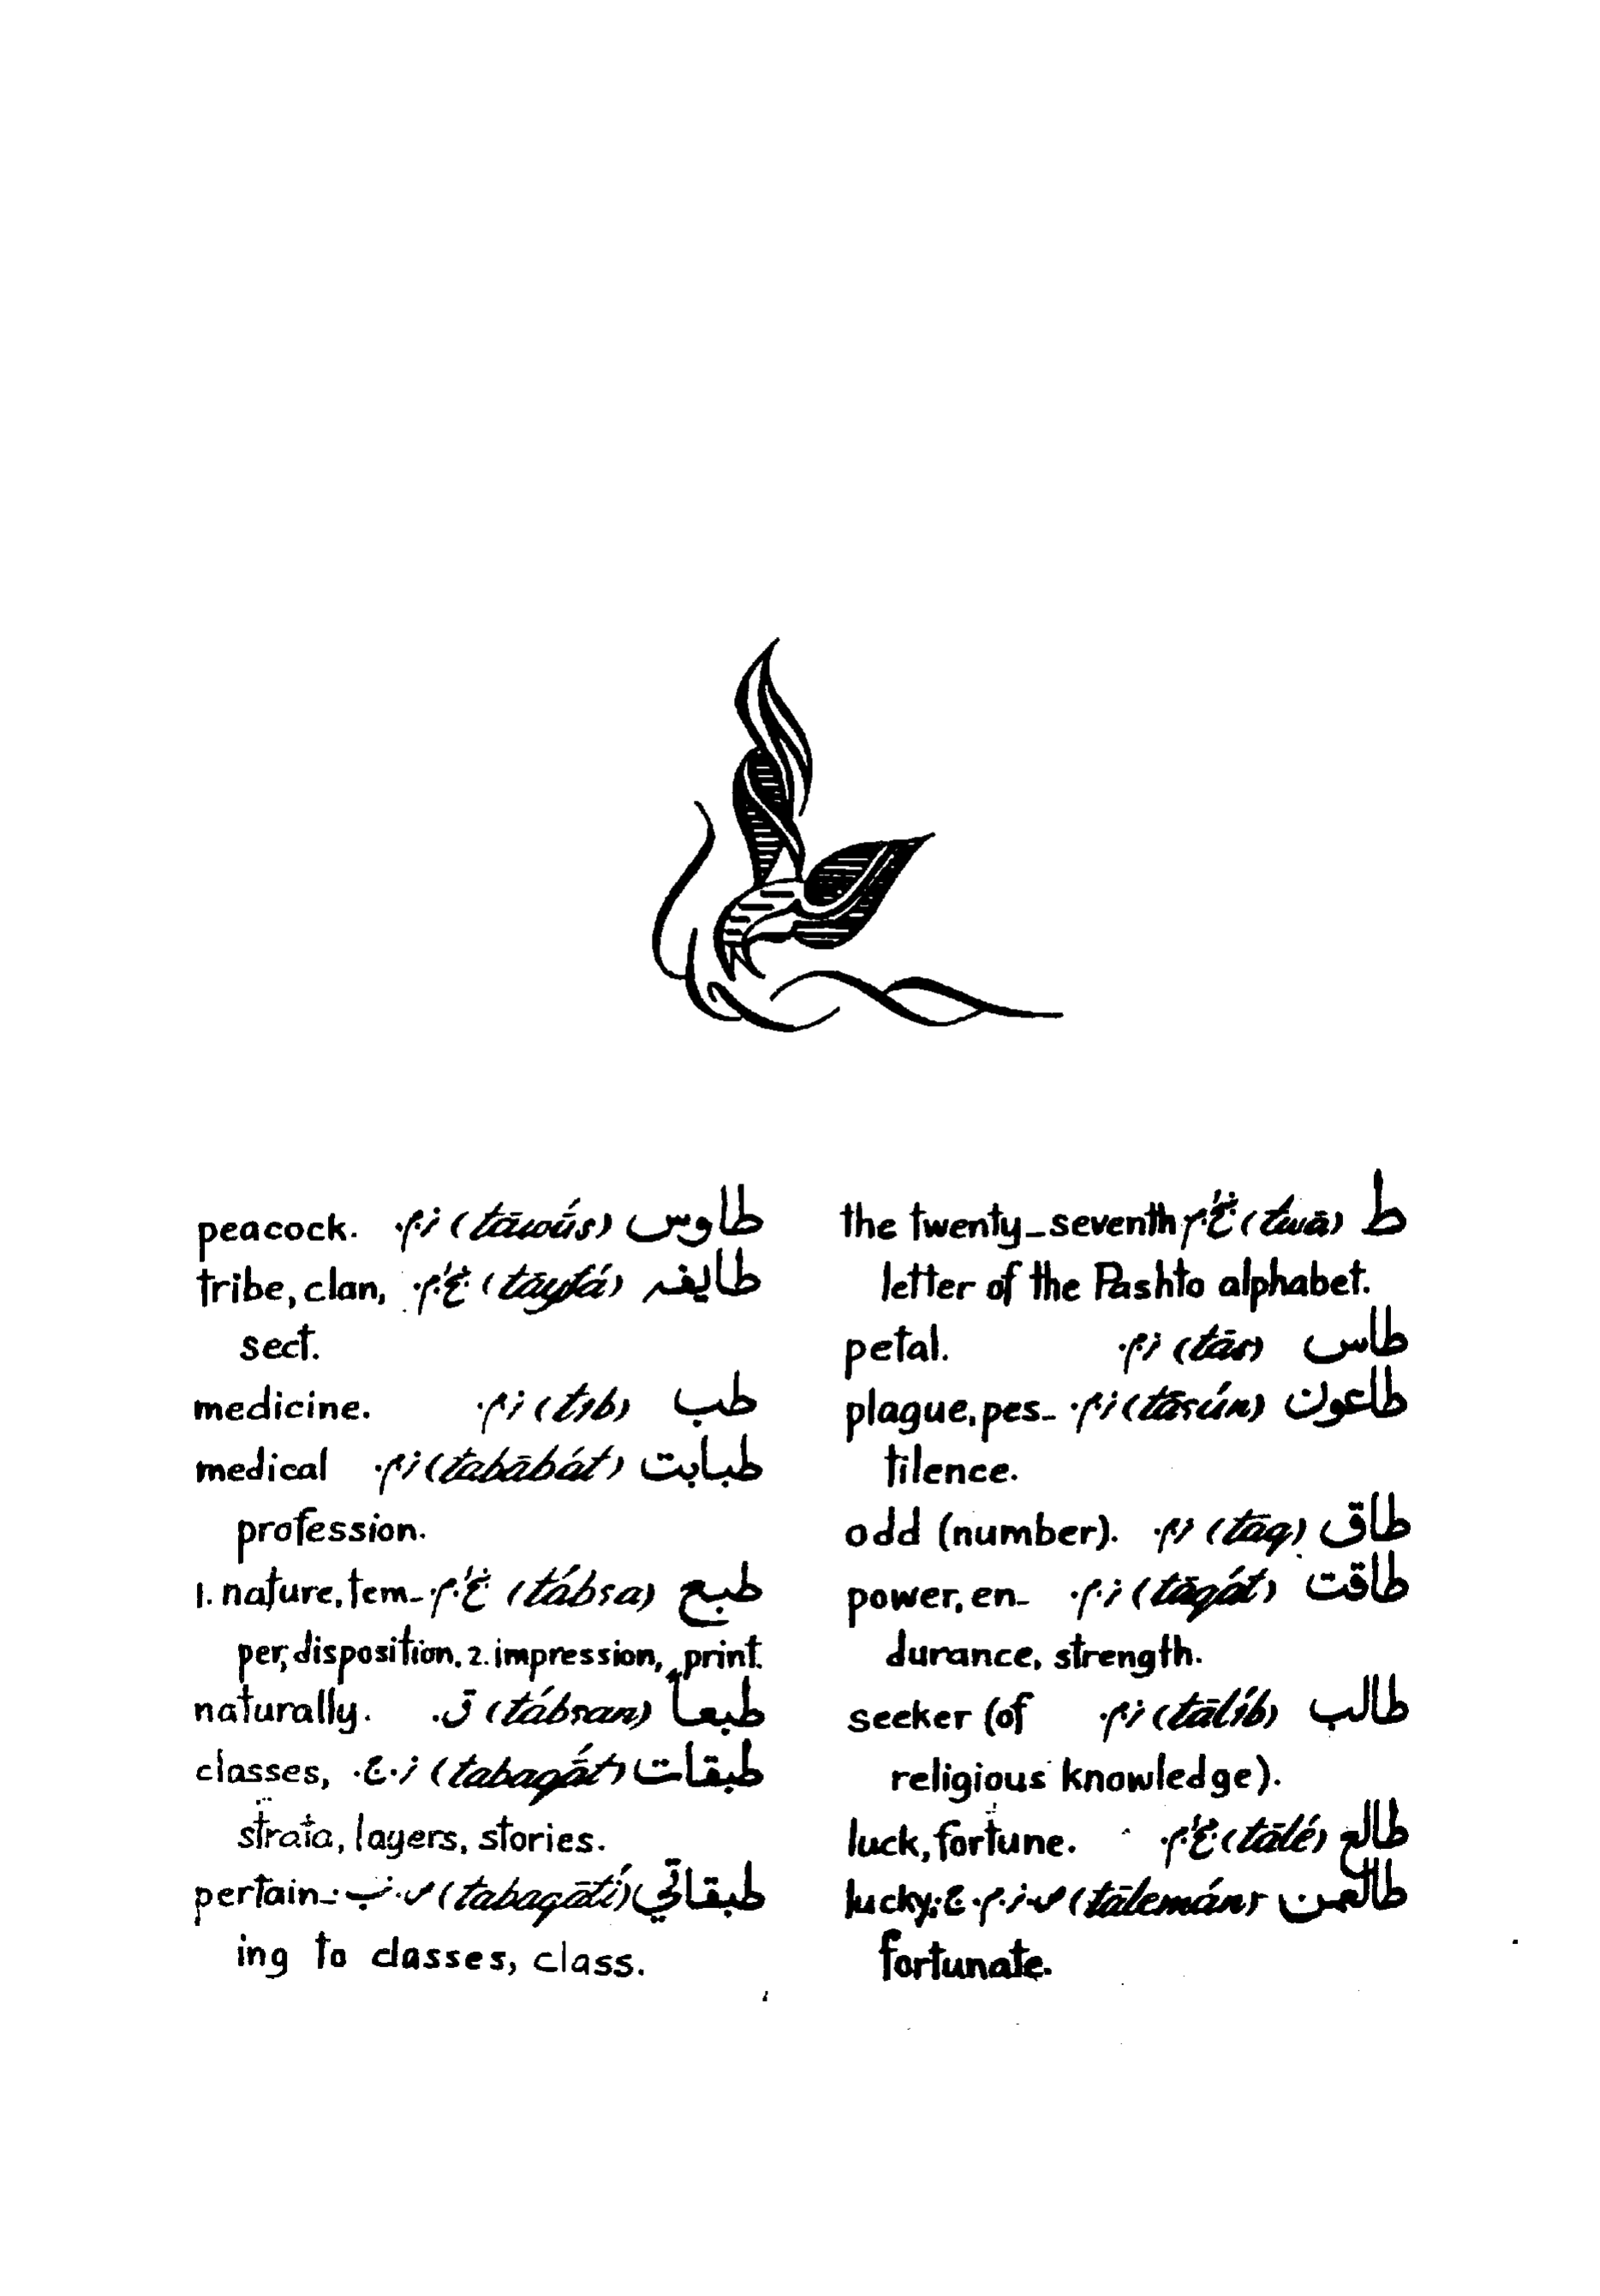 ط (twā) غ.م. the twenty-seventh
letter of the Pashto alphabet.
طاس (tās) ن.م. petal.
طاعون (tāsún) ن.م. plague, pes-
tilence.
طاق (tāq) ن.م. odd (number).
طاقت (tāqát) ن.م. power, en-
durance, strength.
طالب (tālíb) ن.م. seeker (of
religious knowledge).
طالع (tālé) luck, fortune.
طالعمن (tālemán) lucky;
fortunate.
طاوس (tāwū́s) ن.م. peacock.
طايفه (tāyfá) tribe, clan,
sect.
طب (tıb) ن.م. medicine.
طبابت (tabābát) ن.م. medical
profession.
طبع (tábsa) 1. nature, tem-
per, disposition, 2. impression, print.
طبعاً (tábsan) ق. naturally.
طبقات (tabaqā́t) ن.ج. classes,
strata, layers, stories.
طبقاتي (tabaqātí) pertain-
ing to classes, class.